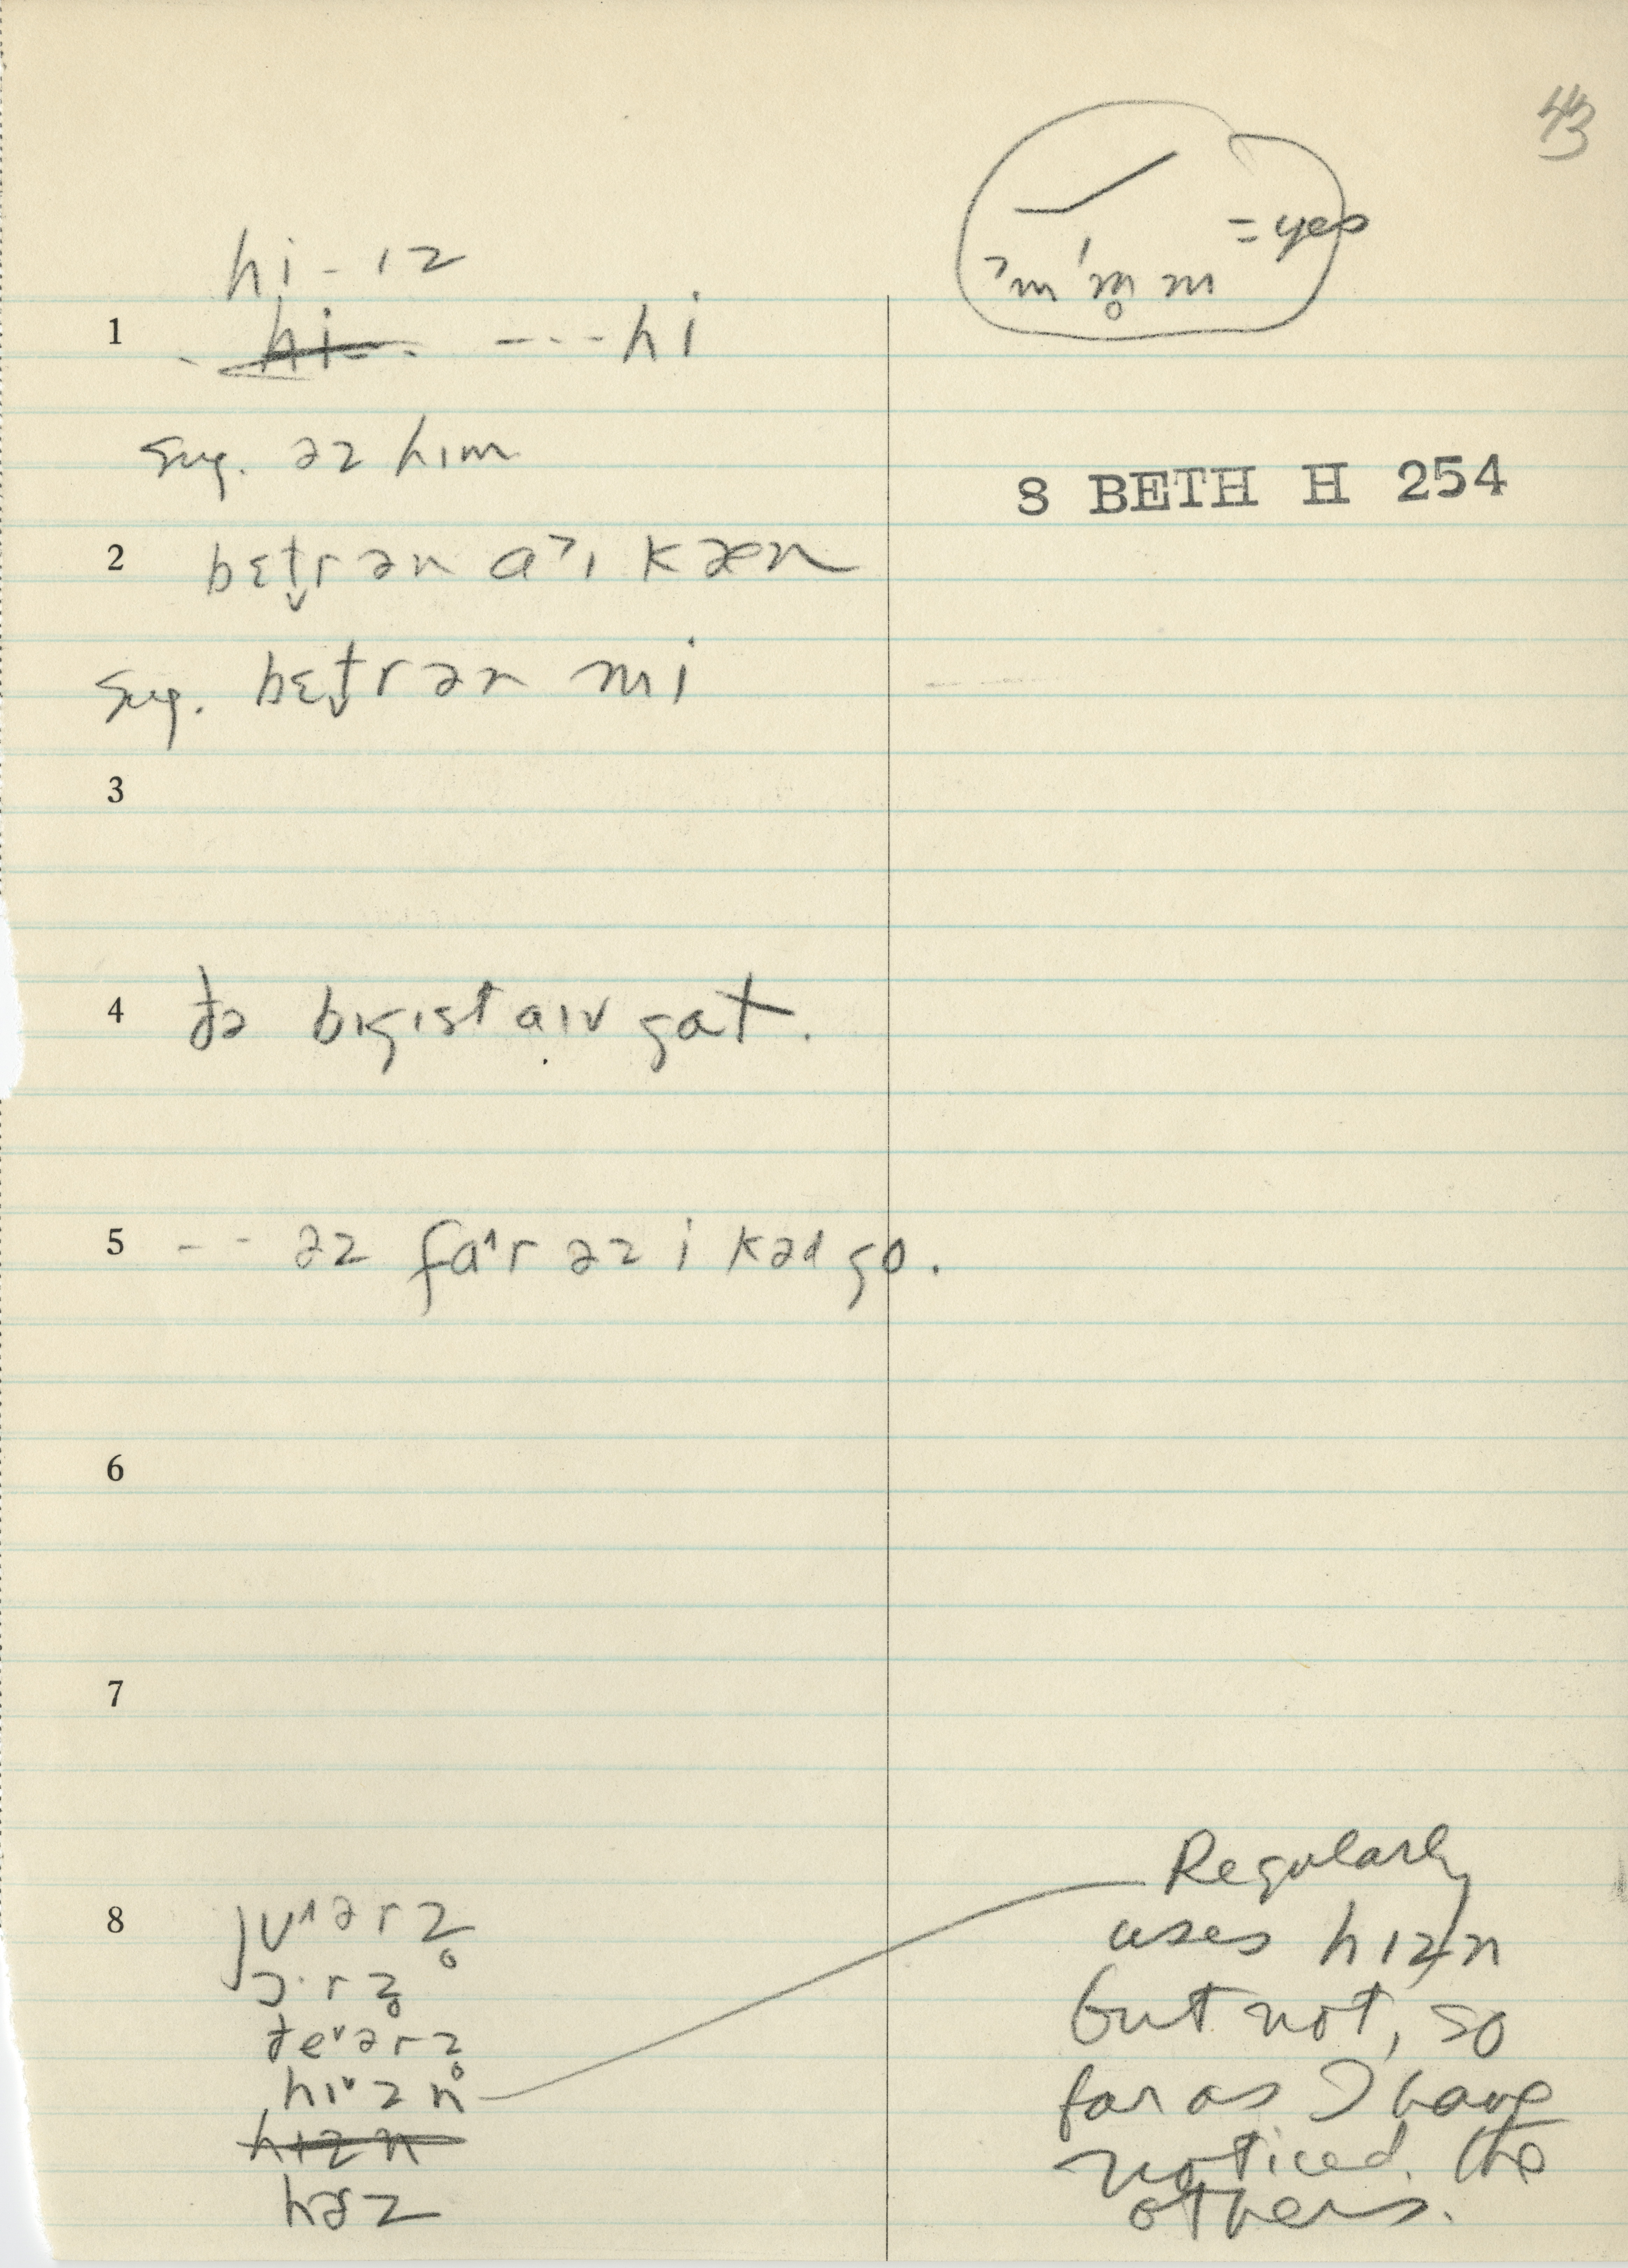 43
= yes
ˀm ˈm̥ m
hi - ɪz
1 hi ---- hi
sug. əz hɪm
8 BETH H 254
2 bɛt̬rən aˀɪ kæn
sug. bɛt̬rən mi
3
4 ðə bɪgɪst aɪv gat.
5 -- əz faˈr əz i kəd go.
6
7
8 jʊ^ərz̥
ɔ·rz̥
ðeˇərz̥
hɪˇzn
hɪzn
hɚz
Regularly
uses hɪzn
but not, so
far as I have
noticed, the
others.